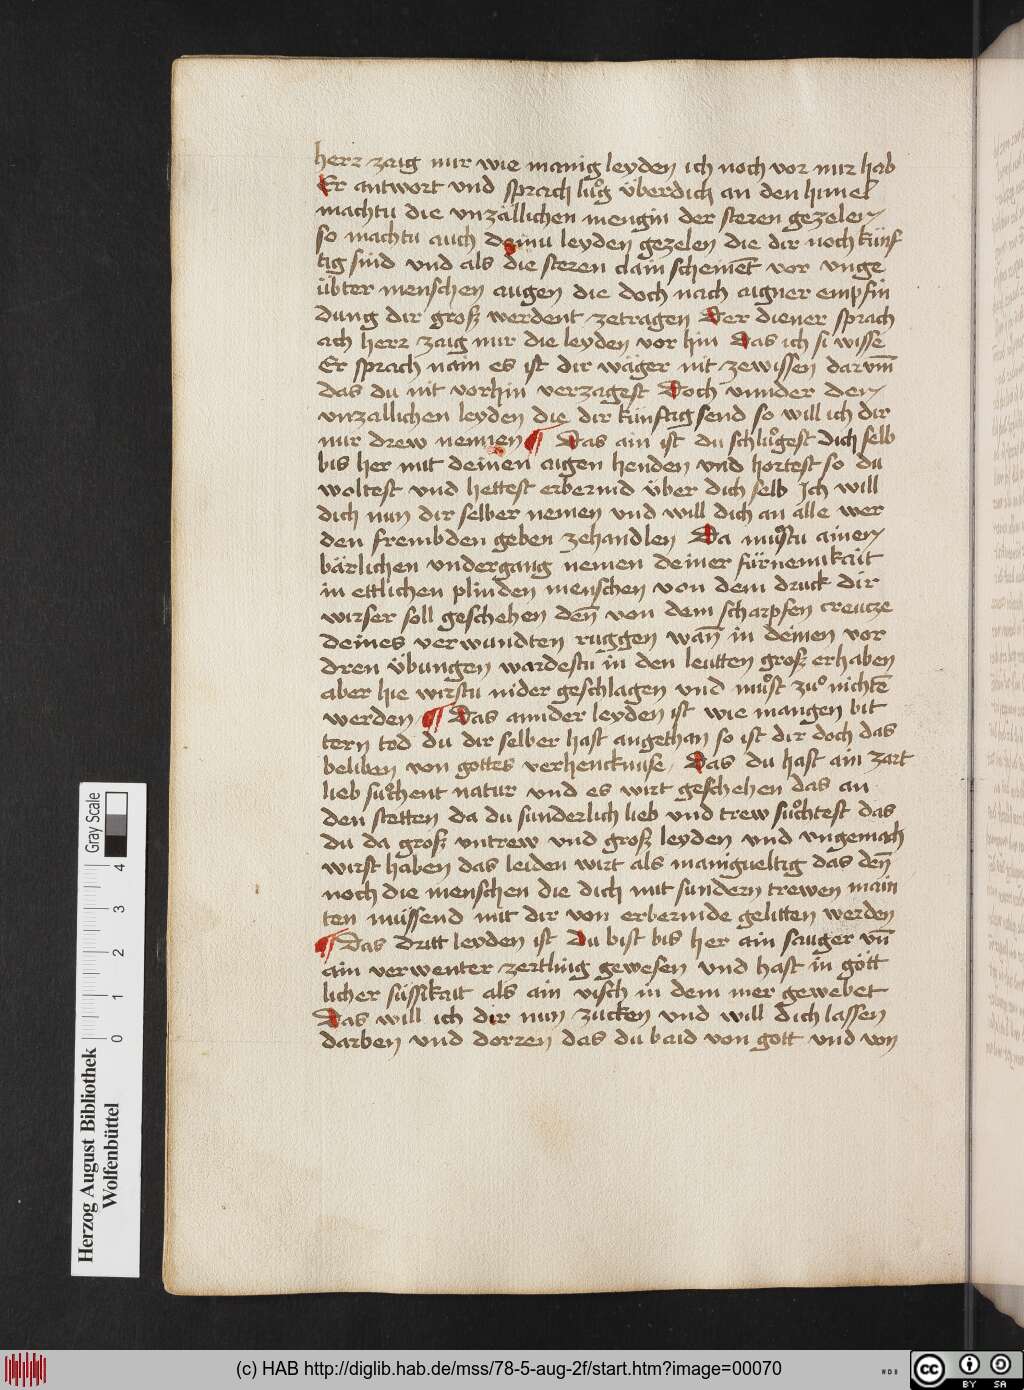 herr zaig mir wie manig leyden ich noch vor mir hab
Er antwort vnd sprach luͦg überdich an den himel
machtu die vnzällichen mengin der steren gezelen
so machtu auch deinu leyden gezelen die dir noch künf
tig sind vnd als die steren clain scheinēt vor vnge
übter menschen augen die doch nach aigner empfin
dung dir groß werdent zetragen Der diener sprach
ach herr zaig mir die leyden vor hin Das ich si wisse
Er sprach nain es ist dir wäger nit zewissen darvm̄
das du nit vorhin verzagest Doch vnnder den
vnzallichen leyden die dir künftig send so will ich dir
nur drew nennen ¶ Das ain ist du schluͦgest dich selb
bis her mit deinen aigen henden vnd hortest so du
woltest vnd hettest erbermd über dich selb Ich will
dich nun dir selber nemen vnd will dich an alle wer
den frembden geben zehandlen Da muͦstu ainen
bärlichen vndergang nemen deiner fürnemikait
in ettlichen plinden menschen von dem druck dir
wirser soll geschehen den̄ von dem scharpfen creutze
deines verwundten ruggen wan̄ in deinen vor
dren übungen wardestu in den leutten groß erhaben
aber hie wirstu nider geschlagen vnd muͦst zuͦ nichtē
werden ¶ Das annder leyden ist wie mangen bit
tern tod du dir selber hast angethan so ist dir doch das
beliben von gottes verhencknuse Das du hast ain zart
lieb suͦchent natur vnd es wirt geschehen das an
den stetten da du sunderlich lieb vnd trew suͦchtest das
du da groß vntrew vnd groß leyden vnd vngemach
wirst haben das leiden wirt als manigueltig das den̄
noch die menschen die dich mit sundern trewen main
ten müssend mit dir von erbermde gelitten werden
¶ Das dritt leyden ist Du bist bis her ain sauger vn̄
ain verwenter zertling gewesen vnd hast in gött
licher süssikait als ain visch in dem mer gewebet
Das will ich dir nun zucken vnd will dich lassen
darben vnd dorren das du baid von gott vnd von
Herzog August Bibliothek
Wolfenbüttel
0 1 2 3 4
Gray Scale
(c) HAB http://diglib.hab.de/mss/78-5-aug-2f/start.htm?image=00070
WDB
cc BY SA